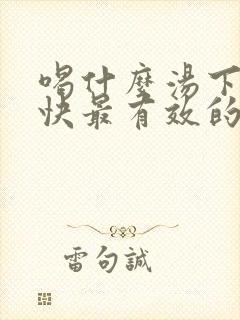 喝什麼湯下
快最有效的
雷句誠